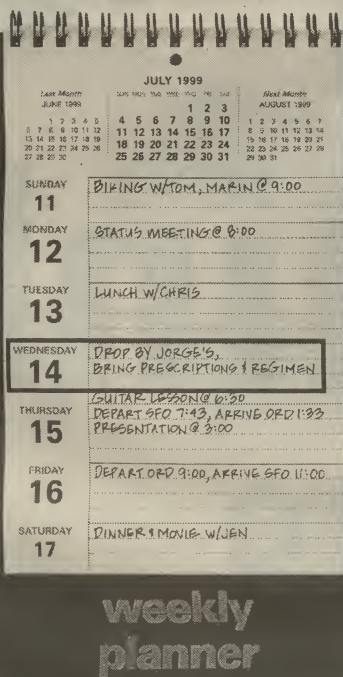 JULY 1999
Last Month
JUNE 1999
1 2 3 4 5
6 7 8 9 10 11 12
13 14 15 16 17 18 19
20 21 22 23 24 25 26
27 28 29 30
SUN MON TUE WED THU FRI SAT
1 2 3
4 5 6 7 8 9 10
11 12 13 14 15 16 17
18 19 20 21 22 23 24
25 26 27 28 29 30 31
Next Month
AUGUST 1999
1 2 3 4 5 6 7
8 9 10 11 12 13 14
15 16 17 18 19 20 21
22 23 24 25 26 27 28
29 30 31
SUNDAY
11
BIKING W/TOM, MARIN @ 9:00
MONDAY
12
STATUS MEETING @ 8:00
TUESDAY
13
LUNCH W/CHRIS
WEDNESDAY
14
DROP BY JORGE'S,
BRING PRESCRIPTIONS & REGIMEN
GUITAR LESSON @ 6:30
THURSDAY
15
DEPART SFO 7:43, ARRIVE ORD 1:33
PRESENTATION @ 3:00
FRIDAY
16
DEPART ORD 9:00, ARRIVE SFO 11:00
SATURDAY
17
DINNER & MOVIE W/JEN
weekly
planner